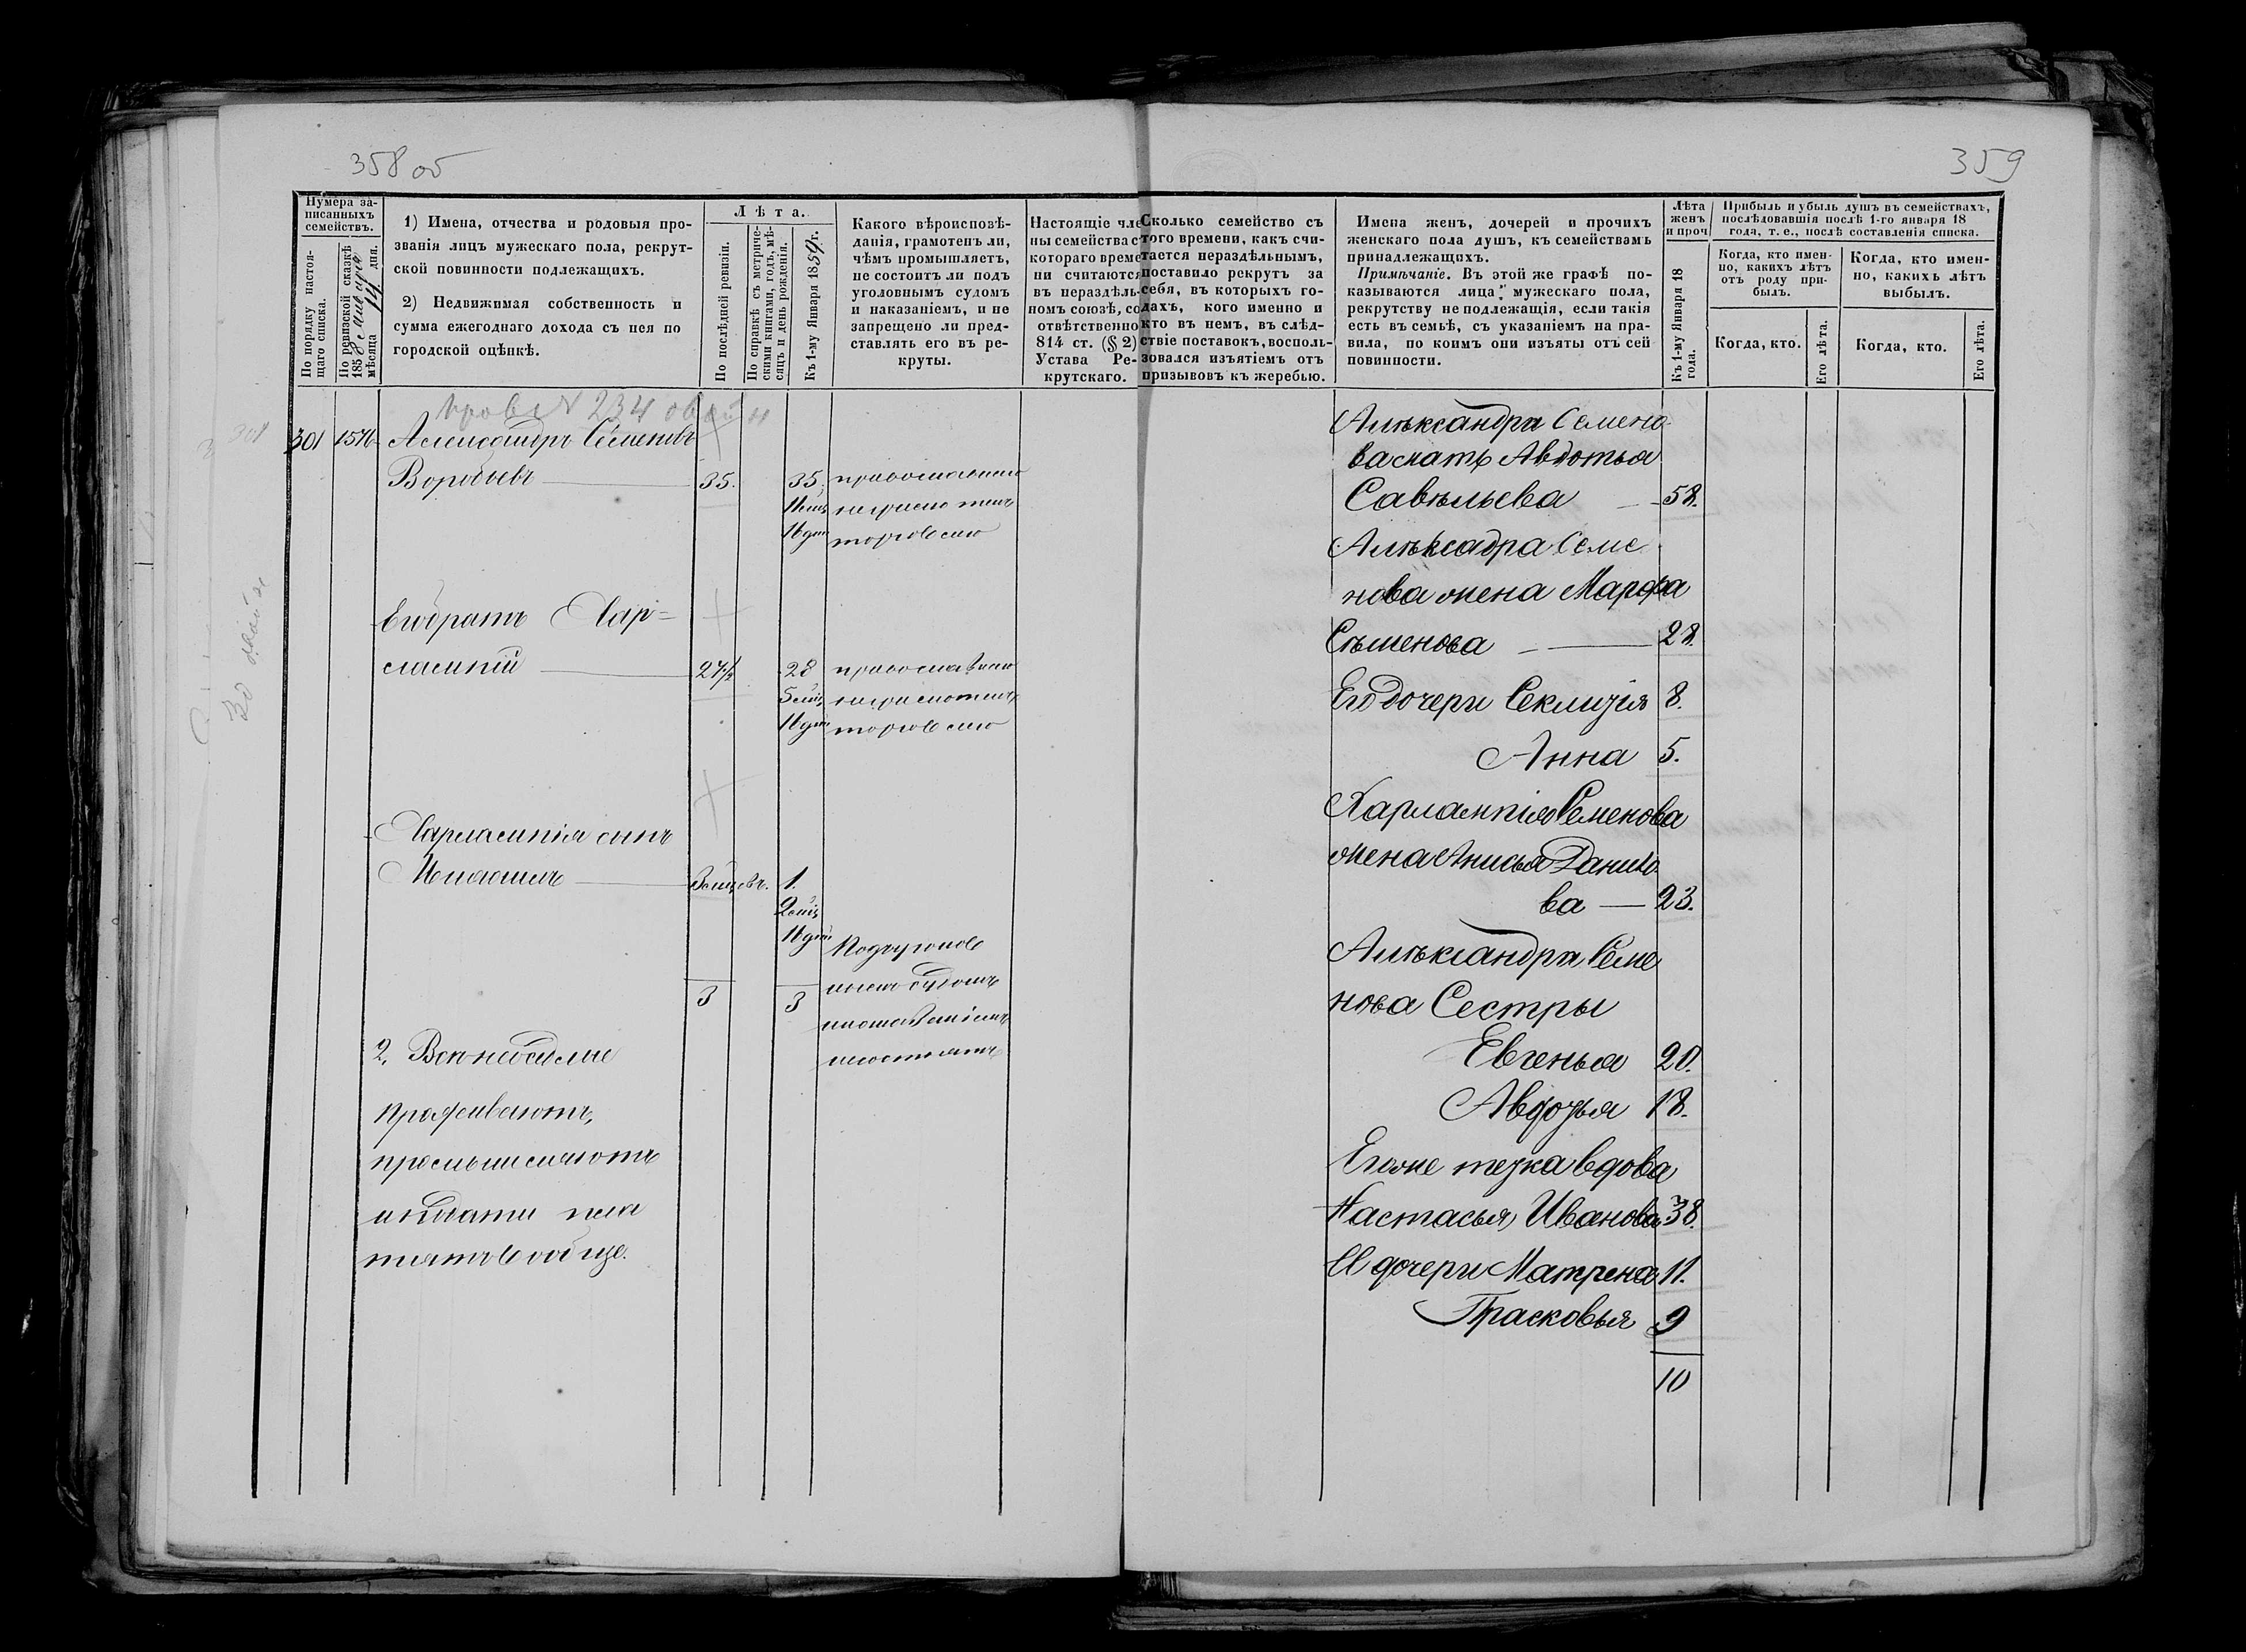 358 об
359
Нумера за-
писанныхъ
семействъ.
По порядку настоя-
щаго списка.
По ревизской сказкѣ
1858 мѣсяца 14 дня.
1) Имена, отчества и родовыя про-
званія лицъ мужескаго пола, рекрут-
ской повинности подлежащихъ.
2) Недвижимая собственность и
сумма ежегоднаго дохода съ нея по
городской оцѣнкѣ.
Лѣта.
По послѣдней ревизіи.
По справкѣ съ метриче-
скими книгами, годъ, мѣ-
сяцъ и день рожденія.
Къ 1-му Января 1859 г.
Какого вѣроисповѣ-
данія, грамотенъ ли,
чѣмъ промышляетъ,
не состоитъ ли подъ
уголовнымъ судомъ
и наказаніемъ, и не
запрещено ли пред-
ставлять его въ ре-
круты.
Настоящіе чле
ны семейства с
котораго време
ни считаются
въ нераздѣль-
номъ союзѣ, со
отвѣтственно
814 ст. (§ 2)
Устава Ре-
крутскаго.
Сколько семейство съ
того времени, какъ счи-
тается нераздѣльнымъ,
поставило рекрутъ за
себя, въ которыхъ го-
дахъ, кого именно и
кто въ немъ, въ слѣд-
ствіе поставокъ, восполь-
зовался изъятіемъ отъ
призывовъ къ жеребью.
Имена женъ, дочерей и прочихъ
женскаго пола душъ, къ семействамъ
принадлежащихъ.
Примѣчаніе. Въ этой же графѣ по-
казываются лица мужескаго пола,
рекрутству не подлежащія, если такія
есть въ семьѣ, съ указаніемъ на пра-
вила, по коимъ они изъяты отъ сей
повинности.
Лѣта
женъ
и проч
Къ 1-му Января 18
года.
Прибыль и убыль душъ въ семействахъ,
послѣдовавшія послѣ 1-го января 18
года, т. е., послѣ составленія списка.
Когда, кто имен-
но, какихъ лѣтъ
отъ роду при-
былъ.
Когда, кто имен-
но, какихъ лѣтъ
выбылъ.
Когда, кто.
Его лѣта.
Когда, кто.
Его лѣта.
№ 234
301
301 Александръ Семеновъ
Воробьевъ 35. 35. православнаго
неграмотенъ
торговлею
Его братъ Хар=
лампій 27½ 28 православнаго
неграмотенъ
торговлею
Харлампія сынъ
1.
Подъ уголов
нымъ судомъ
инаказаніемъ
несостоятъ
3 3
2, Всѣ невселые
проживаютъ,
промышляютъ
иподати пла
тятъ вообще.
Алѣксандра Семено-
ва мать Авдотья
Савѣльева 58.
Алѣксадра Семе
нова жена Марфа
Сѣменова 28.
Его дочери Секлизія 8.
Анна 5.
Харлампія Семенова
жена Анисья Данило
ва 23.
Алѣксандра Семе
нова Сестры
Евгенья 20.
Авдозья 18.
Егоже тезка вдова
Настасья Иванова 38.
Ея дочери Матрена 11.
Прасковья 9
10